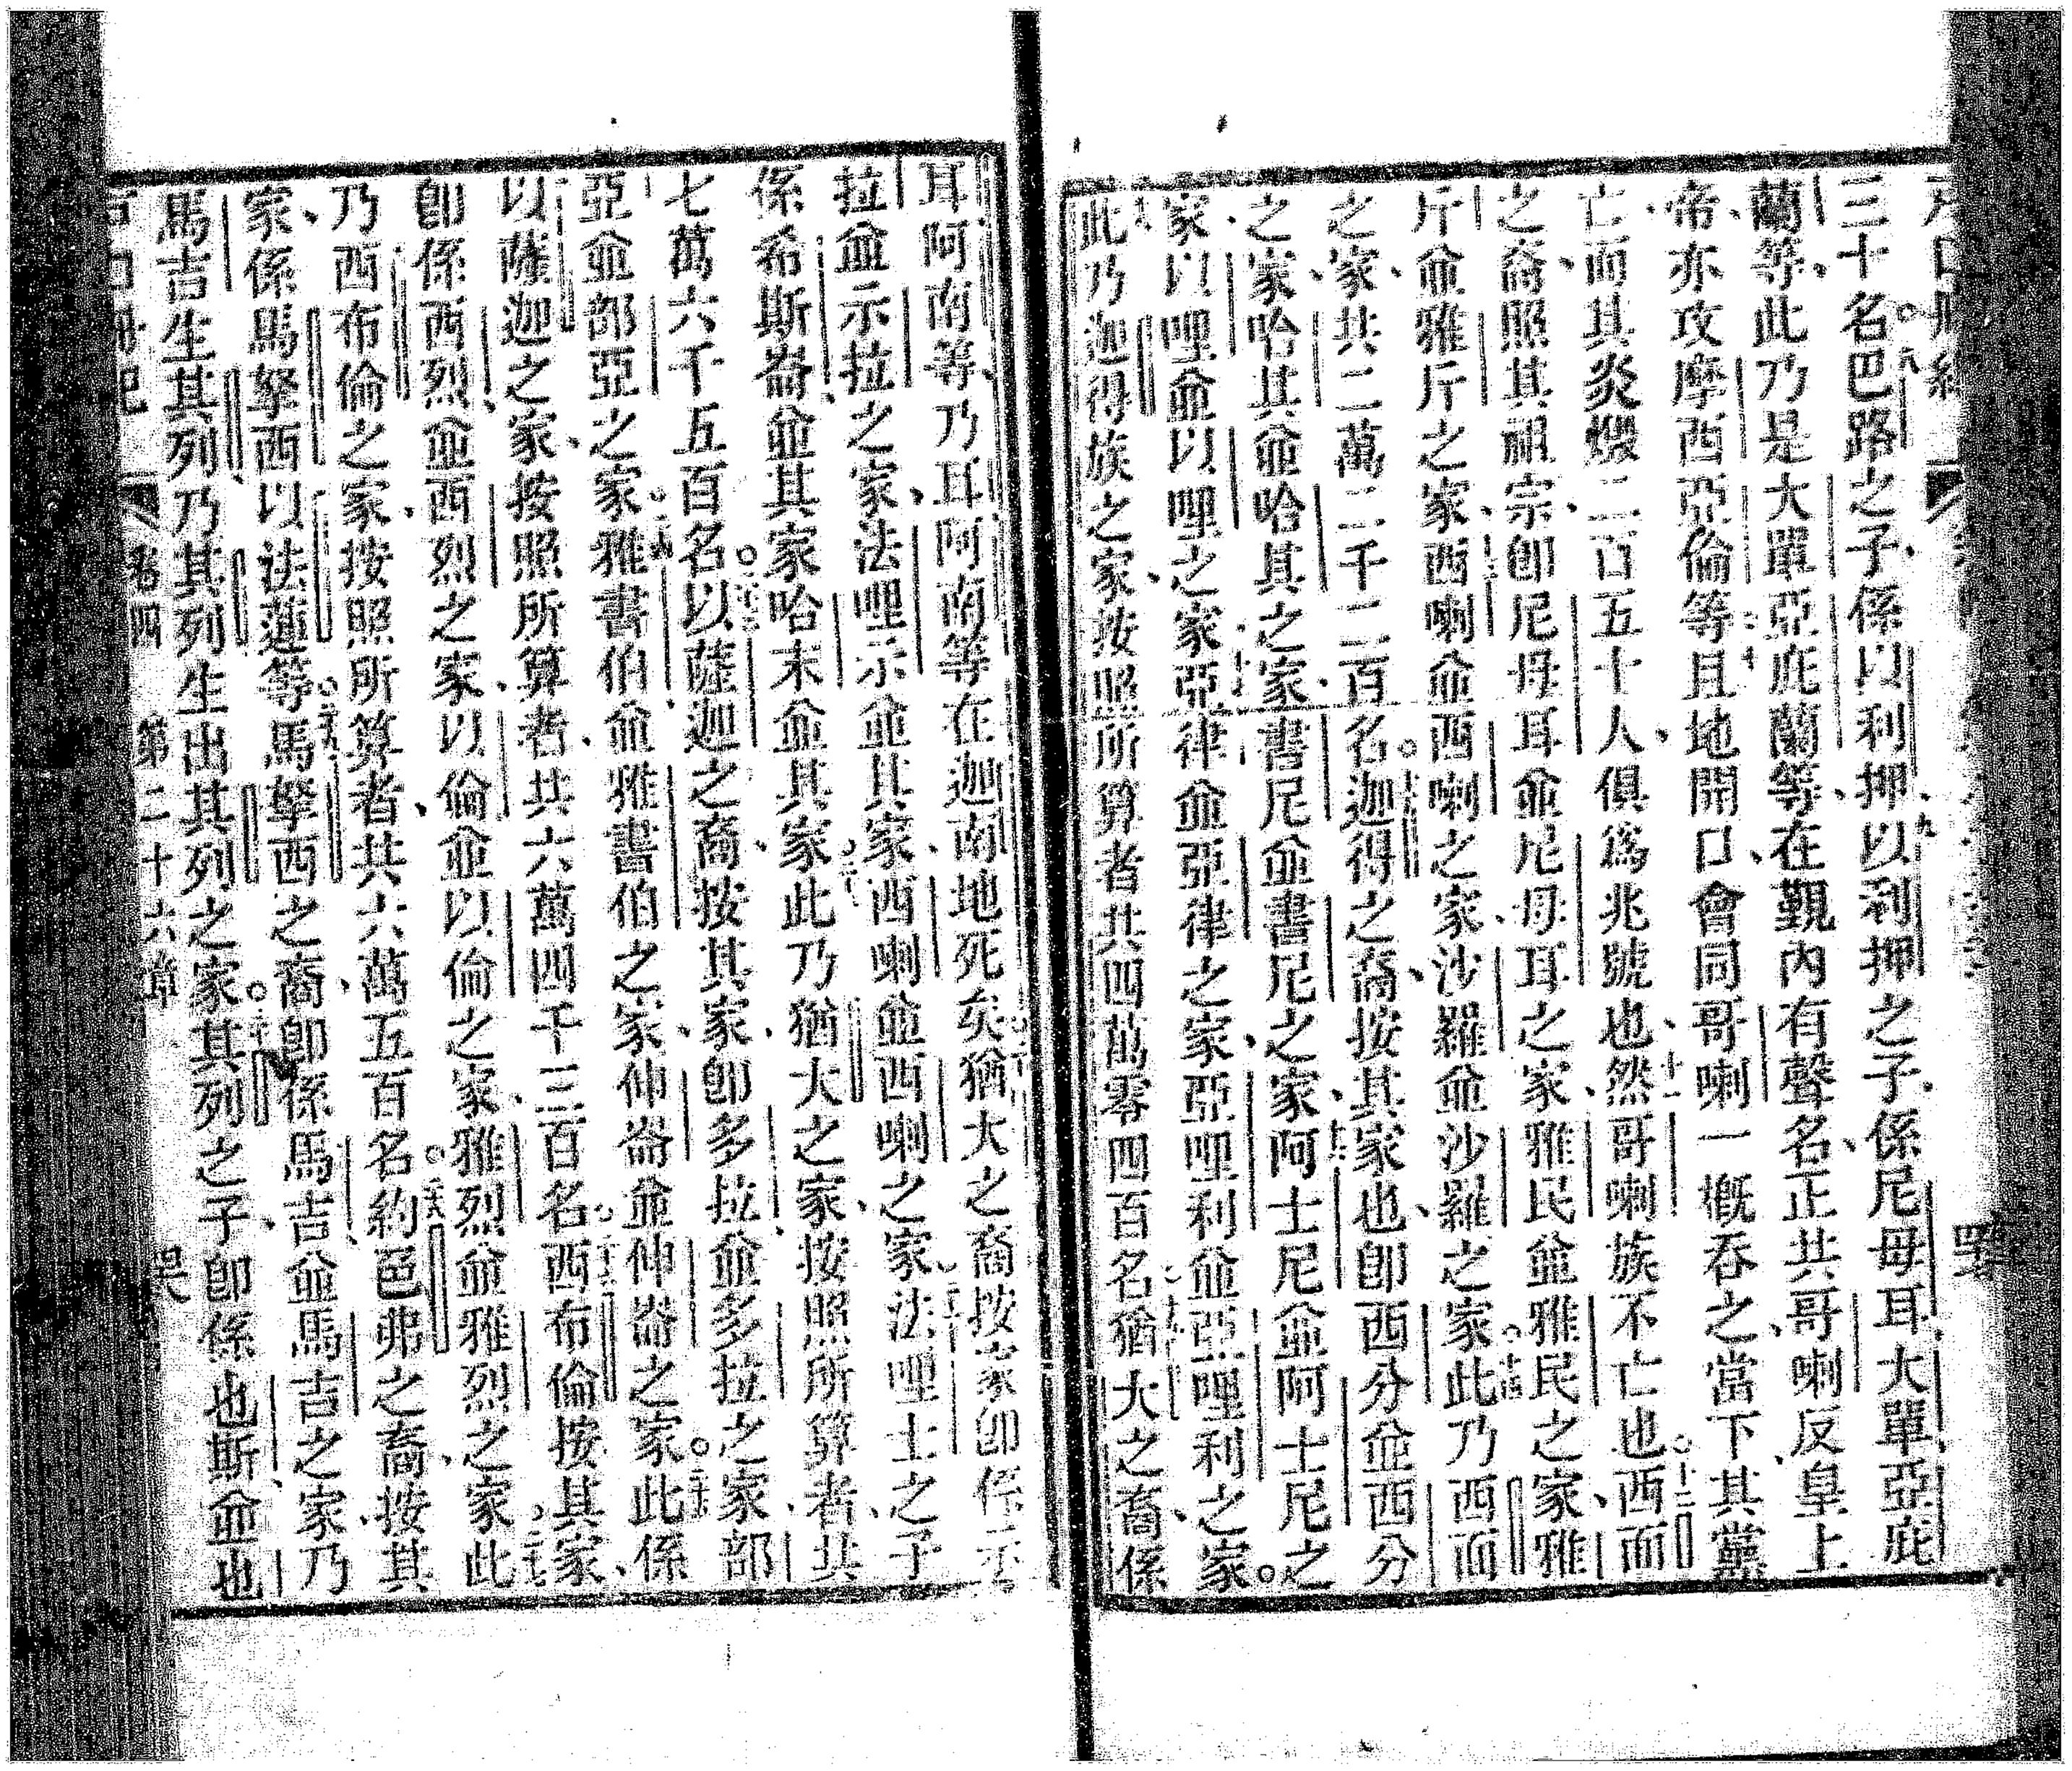 三十名。八巴路之子、係以利押、九以利押之子、係尼母耳、大單亞庇
蘭等、此乃是大單亞庇蘭等、在觀內有聲名、正共哥喇反皇上
帝、亦攻摩西亞倫等、十且地開口、會同哥喇一概吞之、當下其黨
亡、而其炎燬二百五十人、俱為兆號也、十一然哥喇族不亡也。十二西面
之裔、照其祖宗、卽尼母耳並尼母耳之家、雅民並雅民之家、雅
斤並雅斤之家、十三西喇並西喇之家、沙羅並沙羅之家。十四此乃西面
之家、共二萬二千二百名。十五迦得之裔、按其家也、卽西分並西分
之家、哈其並哈其之家、書尼並書尼之家、十六阿士尼並阿士尼之
家、以哩並以哩之家、十七亞律並亞律之家、亞哩利並亞哩利之家。
十八此乃迦得族之家、按照所算者、共四萬零四百名。十九猶大之裔、係
耳、阿南等、乃耳阿南等、在迦南地死矣。二十猶大之裔按家、卽係示
拉並示拉之家、法哩示並其家、西喇並西喇之家。二十一法哩士之子
係希斯崙並其家、哈末並其家。二十二此乃猶大之家、按照所算者、共
七萬六千五百名。二十三以薩迦之裔、按其家、卽多拉並多拉之家、部
亞並部亞之家。二十四雅書伯並雅書伯之家、伸崙並伸崙之家。二十五此係
以薩迦之家、按照所算者、共六萬四千三百名。二十六西布倫按其家、
卽係西烈並西烈之家、以倫並以倫之家、雅烈並雅烈之家。二十七此
乃西布倫之家、按照所算者、共六萬五百名。二十八約邑弗之裔、按其
家、係馬拏西以法蓮等。二十九馬拏西之裔、卽係馬吉並馬吉之家、乃
馬吉生其列、乃其列生出其列之家。三十其列之子、卽係也斯並也
卷四 第二十六章